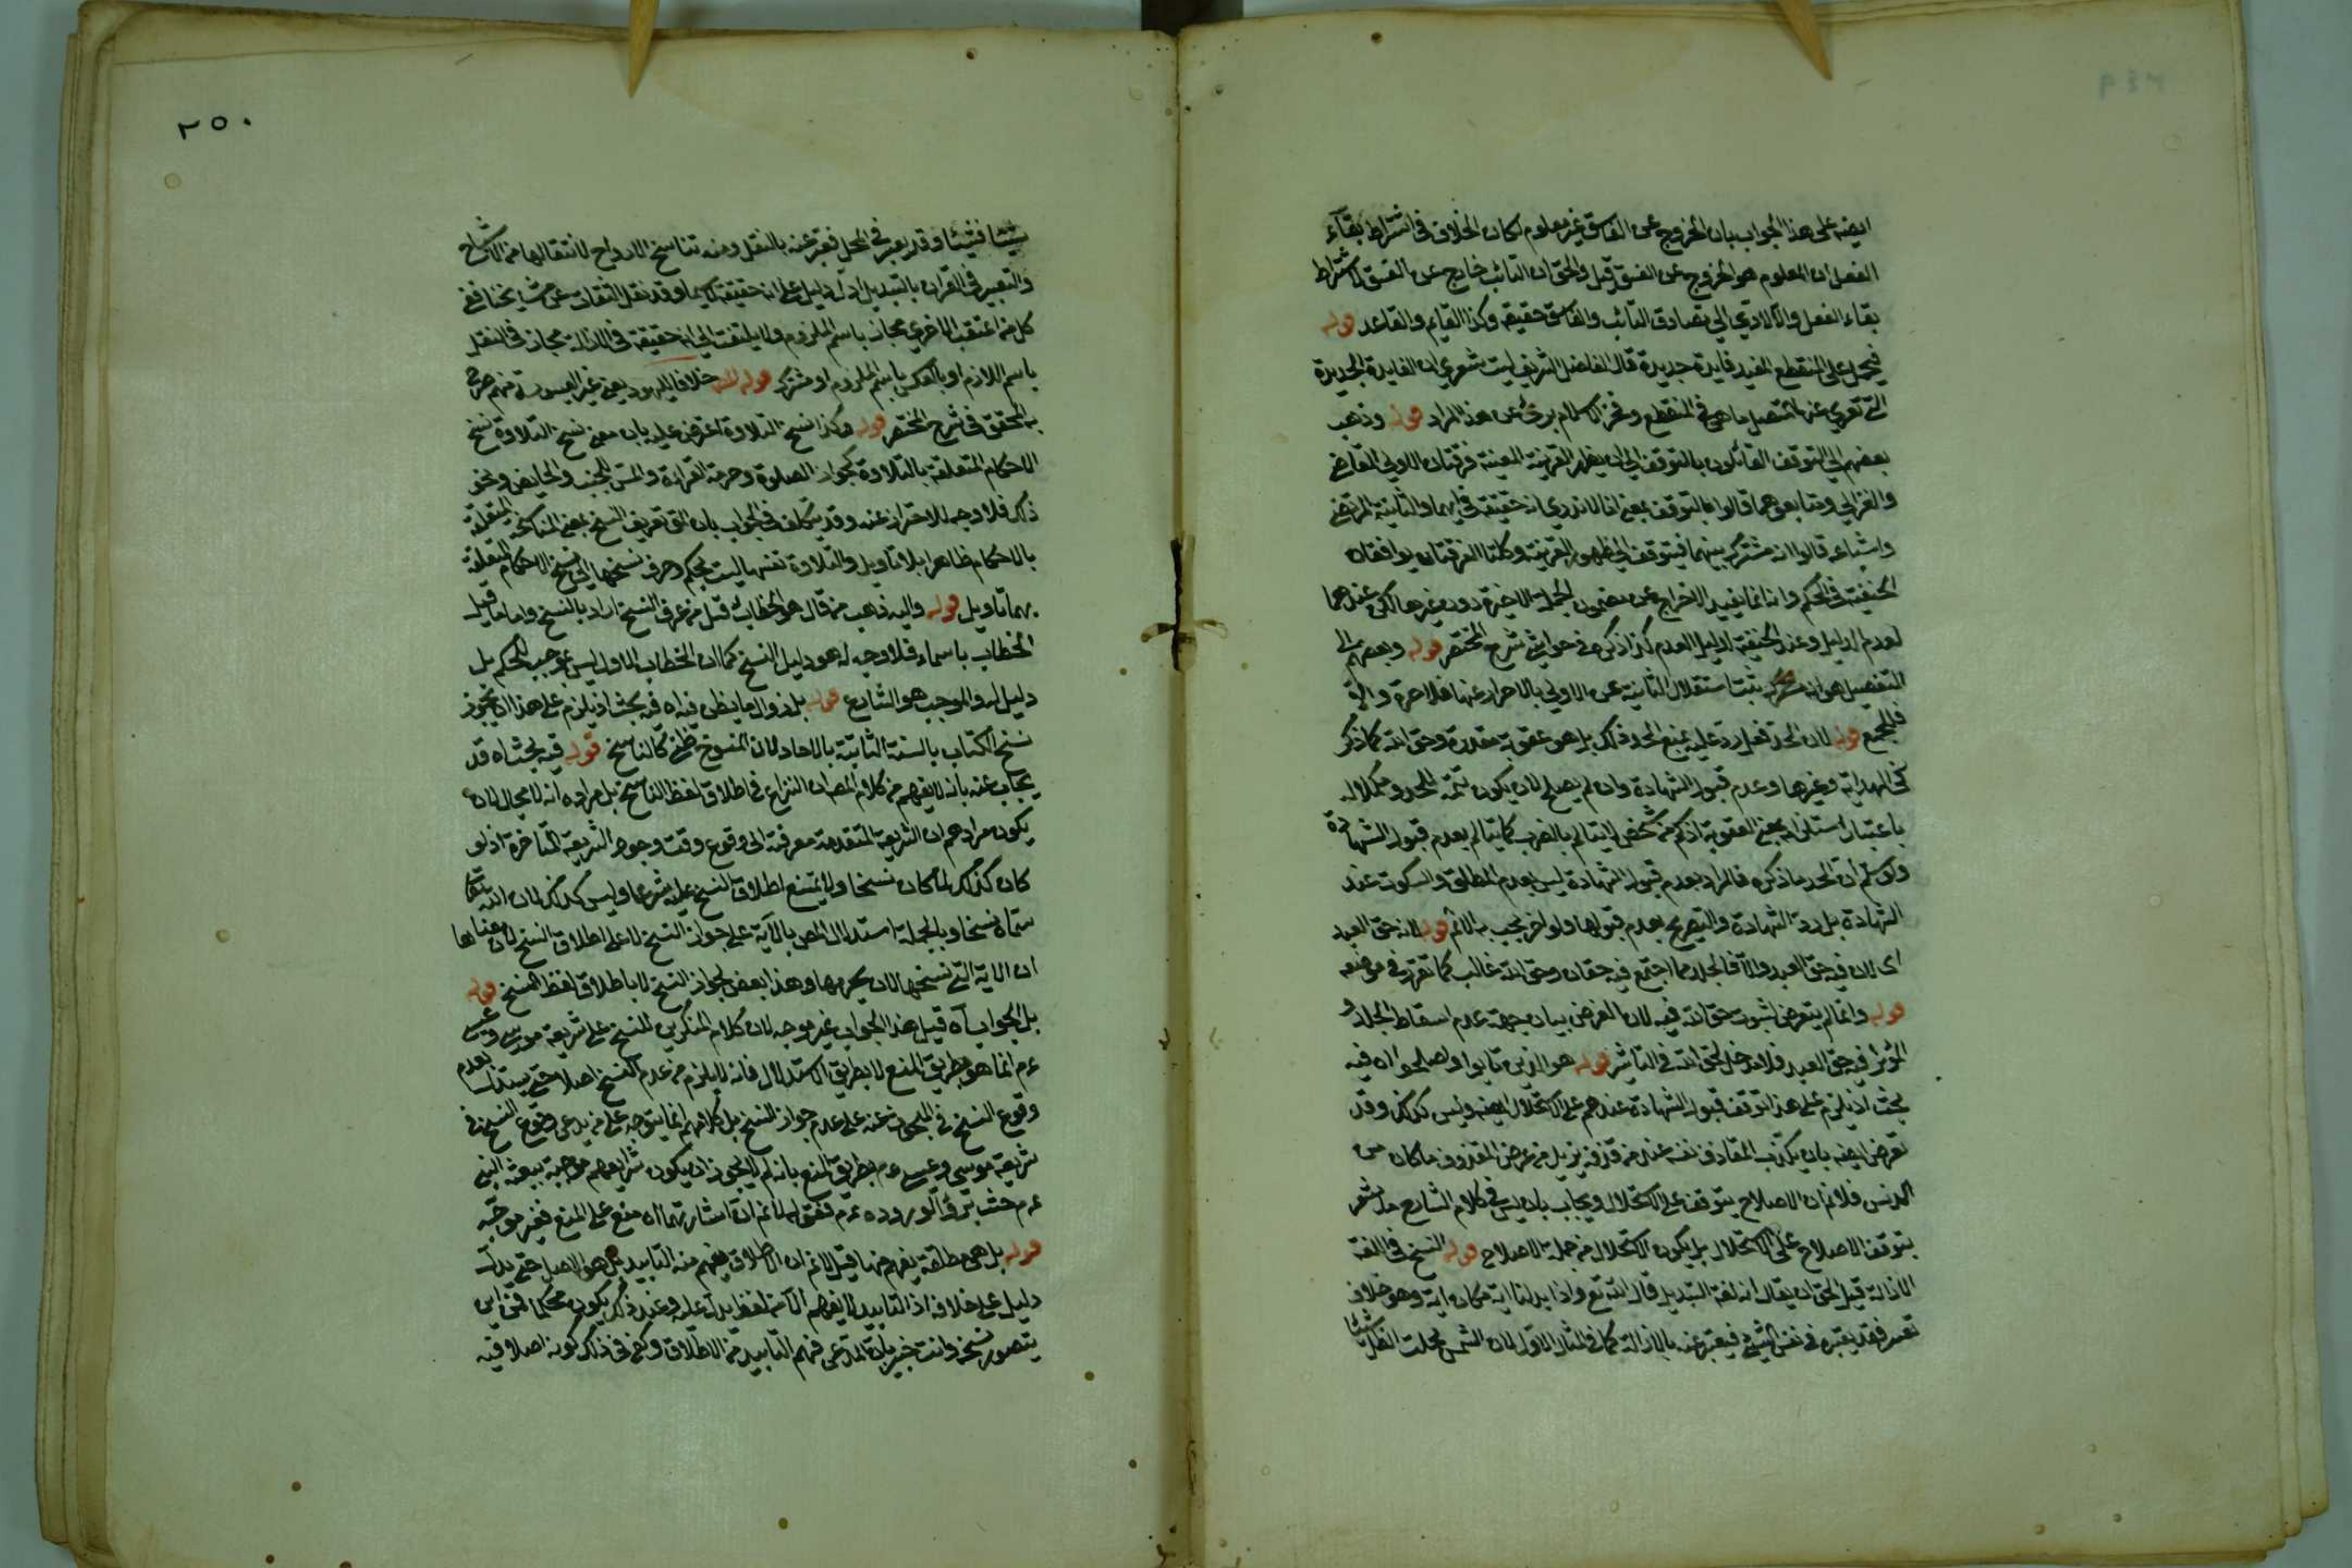 ايضا على هذا الجواب بان الخروج عن الفاسق غير معلوم لمكان الخلاف في اشتراط بقاء
الفعل ان المعلوم هو الخروج عن الفسق قيل والحق ان التائب خارج عن الفسق لاشتراط
بقاء الفعل والا لادى الى تصادق التائب والفاسق حقيقة وكذا القايم والقاعد قوله
فيحمل على المنقطع المفيد فايدة جديدة قال الفاضل الشريف ليت شعري ان الفايدة الجديدة
التي تعرى عنها المتصل ما هي في المنقطع وفخر الاسلام برئ عن هذا المراد قوله وذهب
بعضهم الى التوقف القائلون بالتوقف الى ان يظهر القرينة المعينة فرقتان الاولى القاضي
والغزالي ومتابعوهما قالوا بالتوقف بمعنى انا لا ندري انه حقيقة في ايهما والثانية المرتضى
واشياعه قالوا انه مشترك بينهما فيتوقف الى ظهور القرينة وكلتا الفرقتان يوافقان
الحنفية في الحكم وانه انما يفيد الاخراج عن مضمون الجملة الاخيرة دون غيرها لكن عندهما
لعدم الدليل وعند الحنفية لدليل العدم كذا ذكره في حواشي شرح المختصر قوله وبعضهم الى
التفصيل هو انه يثبت استقلال الثانية عن الاولى بالاضراب عنها فللاخيرة والا
فللجميع قوله لان الحد فعل رد عليه بمنع الحد فذلك بل هو عقوبة مقدرة وحق الله كما ذكر
في الهداية وغيرها وعدم قبول الشهادة وان لم يصلح لان يكون تتمة للحد ومكملا له
باعتبار استلزامه معنى العقوبة اذ كم من شخص لا يتالم بالضرب كما يتالم بعدم قبول الشهادة
ولو سلم ان الحد ما ذكره فالمراد بعدم قبول الشهادة ليس العدم المطلق والسكوت عند
الشهادة بل رد الشهادة والتصريح بعدم قبولها ولو اخر يجب به الاثم قوله لانه حق العبد
اى لان فيه حق العبد والا فالجلد مما اجتمع فيه حقان وحق الله غالب كما تقرر في موضعه
قوله وانما لم يتعرض لثبوت حق الله فيه لان الغرض بيان جهة عدم اسقاط الجلد و
المؤثر فيه حق العبد فلا دخل لحق الله في التاثير قوله هو الذين تابوا واصلحوا اه فيه
بحث اذ يلزم على هذا توقف قبول الشهادة عندهم على الاستحلال ايضا وليس كذلك وقد
تعرض ايضا بان يكذب القاذف نفسه عند من قذفه يزيل من عرض المقذوف ما كان من
الدنس فلا نم ان الاصلاح يتوقف على الاستحلال ويجاب بان ليس في كلام الشارح ما يشعر
بتوقف الاصلاح على الاستحلال بل يكون الاستحلال من جملة الاصلاح قوله النسخ في اللغة
الازالة قيل الحق ان يقال انه لغة التبديل قال الله تع واذا بدلنا اية مكان اية وهو خلاف
تعسر فقد يعتبر في نفس الشئ فيعبر عنه بالازالة كما في المثال الاول لان الشمس نحلت الظل شيئا
٢٥٠
شيئا فشيئا وقد يعتبر في المحل فعبر عنه بالنقل ومنه تناسخ الارواح لانتقالها من الاشباح
والتعبير في القران بالتبديل ادل دليل على انه حقيقة لا سيما وقد نقل الثقات عن مشايخنا ففي
كل من اعتقب الاخرى مجاز باسم الملزوم ولا يلتفت الى انه حقيقة في الازالة مجاز في النقل
باسم اللازم او بالعكس باسم الملزوم او مشترك قوله خلافا لليهود يعنى غير العيسوية منهم صرح
به المحقق في شرح المختصر قوله وكذا نسخ التلاوة اعترض عليه بان معنى نسخ التلاوة نسخ
الاحكام المتعلقة بالتلاوة كجواز الصلوة وحرمة القراءة والمس للجنب والحايض ونحو
ذلك فلا وجه للاحتراز عنه وقد يتكلف في الجواب بان
بالاحكام ظاهرا بلا تاويل والتلاوة نفسها ليست بحكم وصرف نسخها الى نسخ الاحكام المتعلقة
بهما تاويل قوله واليه ذهب من قال هو الخطاب قيل من عرف النسخ اراد بالنسخ واما ما قيل
الخطاب باسماء فلا وجه له هو دليل النسخ كما ان الخطاب الاول ليس بموجب للحكم بل
دليل له والموجب هو الشارع قوله بل زوال ما يظن فيه اه فيه بحث اذ يلزم على هذا ان يجوز
نسخ الكتاب بالسنة الثابتة بالاحاد لان المنسوخ ظني كالناسخ قوله فيه بحث اه قد
يجاب عنه بانه لا يفهم من كلام المص ان النزاع في اطلاق لفظ الناسخ بل مراده انه لا مجال لان
يكون مرادهم ان الشريعة المتقدمة معرفة الى وقوع وقت وجود الشريعة المتاخرة اذ لو
كان كذلك لما كان نسخا ولا يمتنع اطلاق النسخ عليه شرعا وليس كذلك لان الله تعالى
سماه نسخا وبالجملة استدلال المص بالآية على جواز النسخ لا على اطلاق النسخ لان معناها
ان الاية التي نسختها لان يحرمها وهذا بعض لجواز النسخ لا باطلاق لفظ النسخ قوله
بل الجواب اه قيل هذا الجواب غير موجه لان كلام المنكرين للنسخ على شريعة موسى وعيسى
عم انما هو بطريق المنع لا بطريق الاستدلال فانه لا يلزم من عدم النسخ اصلا حتى يستدل بعدم
وقوع النسخ في المبحوث عنه على عدم جواز النسخ بل كلامهم انما يتوجه على من يدعى وقوع النسخ في
شريعة موسى وعيسى عم بطريق المنع بانه لم لا يجوز ان يكون شرايعهم موجبة ببعثة النبي
عم حيث بشروا لوروده عم فقوله لا نم ان اشارتهما اه منع على المنع فغير موجه
قوله بل هي مطلقة يفهم منها قيل لا نم ان الاطلاق يفهم منه التابيد بل هو الاصل حتى يدل
دليل على خلافه اذ التابيد لا يفهم الا من لفظ يدل عليه وعند ذلك يكون محكما فمن اين
يتصور نسخه وانت خبير بان المدعى فهم التابيد من الاطلاق وكفى في ذلك كونه اصلا فيه